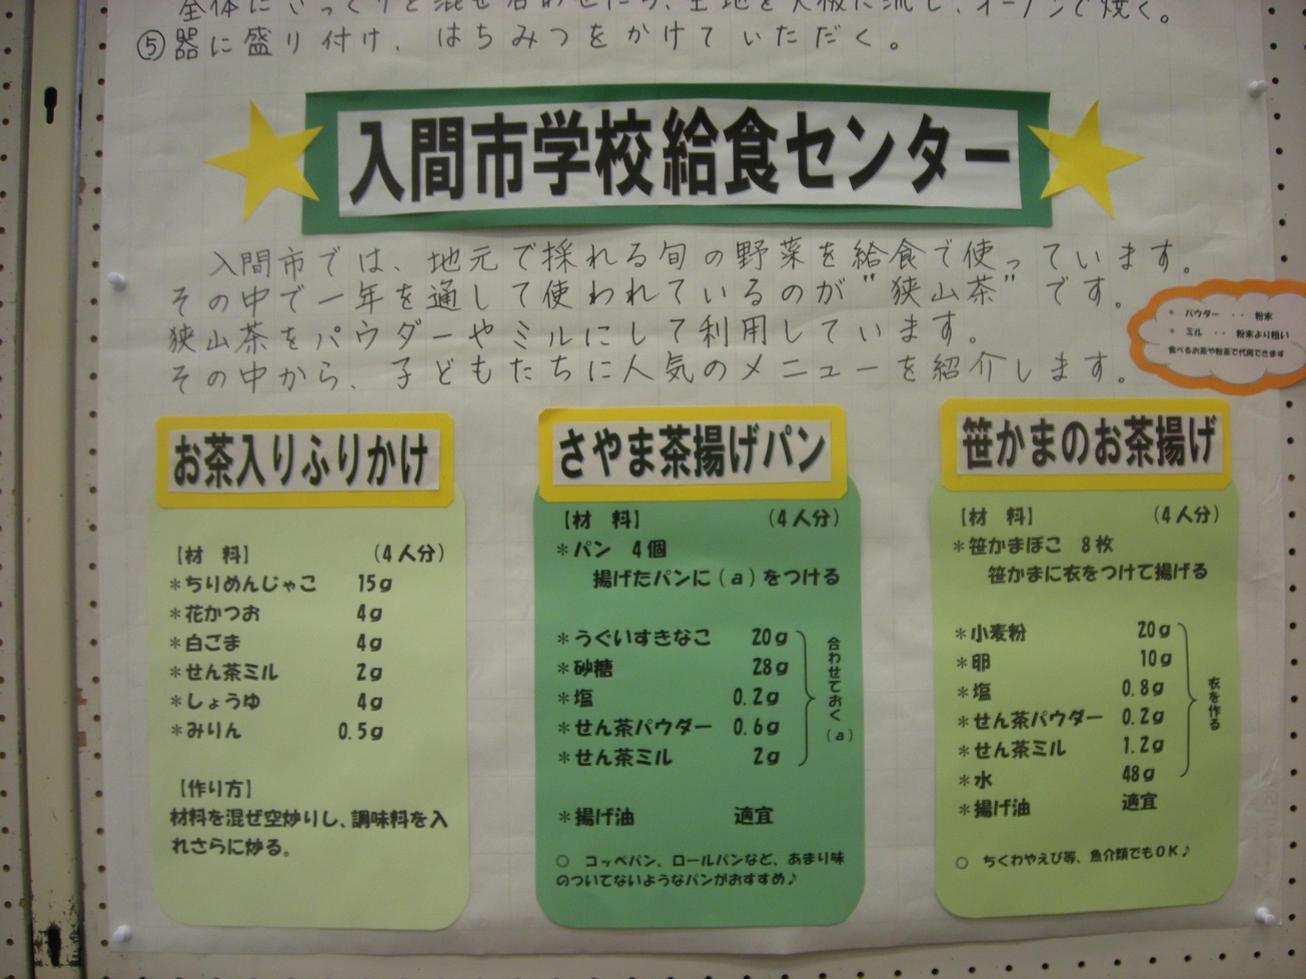 全体にさっくりと混ぜ合わせたら、生地を天板に流し、オーブンで焼く。
⑤器に盛り付け、はちみつをかけていただく。
入間市学校給食センター
入間市では、地元で採れる旬の野菜を給食で使っています。
その中で一年を通して使われているのが"狭山茶"です。
狭山茶をパウダーやミルにして利用しています。
その中から、子どもたちに人気のメニューを紹介します。
＊ パウダー ・・ 粉末
＊ ミル ・・ 粉末より粗い
食べるお茶や粉茶で代用できます
お茶入りふりかけ
【材 料】 (4人分)
＊ちりめんじゃこ 15g
＊花かつお 4g
＊白ごま 4g
＊せん茶ミル 2g
＊しょうゆ 4g
＊みりん 0.5g
【作り方】
材料を混ぜ空炒りし、調味料を入
れさらに炒る。
さやま茶揚げパン
【材 料】 (4人分)
＊パン 4個
揚げたパンに(a)をつける
＊うぐいすきなこ 20g
＊砂糖 28g
＊塩 0.2g
＊せん茶パウダー 0.6g
＊せん茶ミル 2g
合わせておく(a)
＊揚げ油 適宜
○ コッペパン、ロールパンなど、あまり味
のついてないようなパンがおすすめ♪
笹かまのお茶揚げ
【材 料】 (4人分)
＊笹かまぼこ 8枚
笹かまに衣をつけて揚げる
＊小麦粉 20g
＊卵 10g
＊塩 0.8g
＊せん茶パウダー 0.2g
＊せん茶ミル 1.2g
＊水 48g
衣を作る
＊揚げ油 適宜
○ ちくわやえび等、魚介類でもOK♪